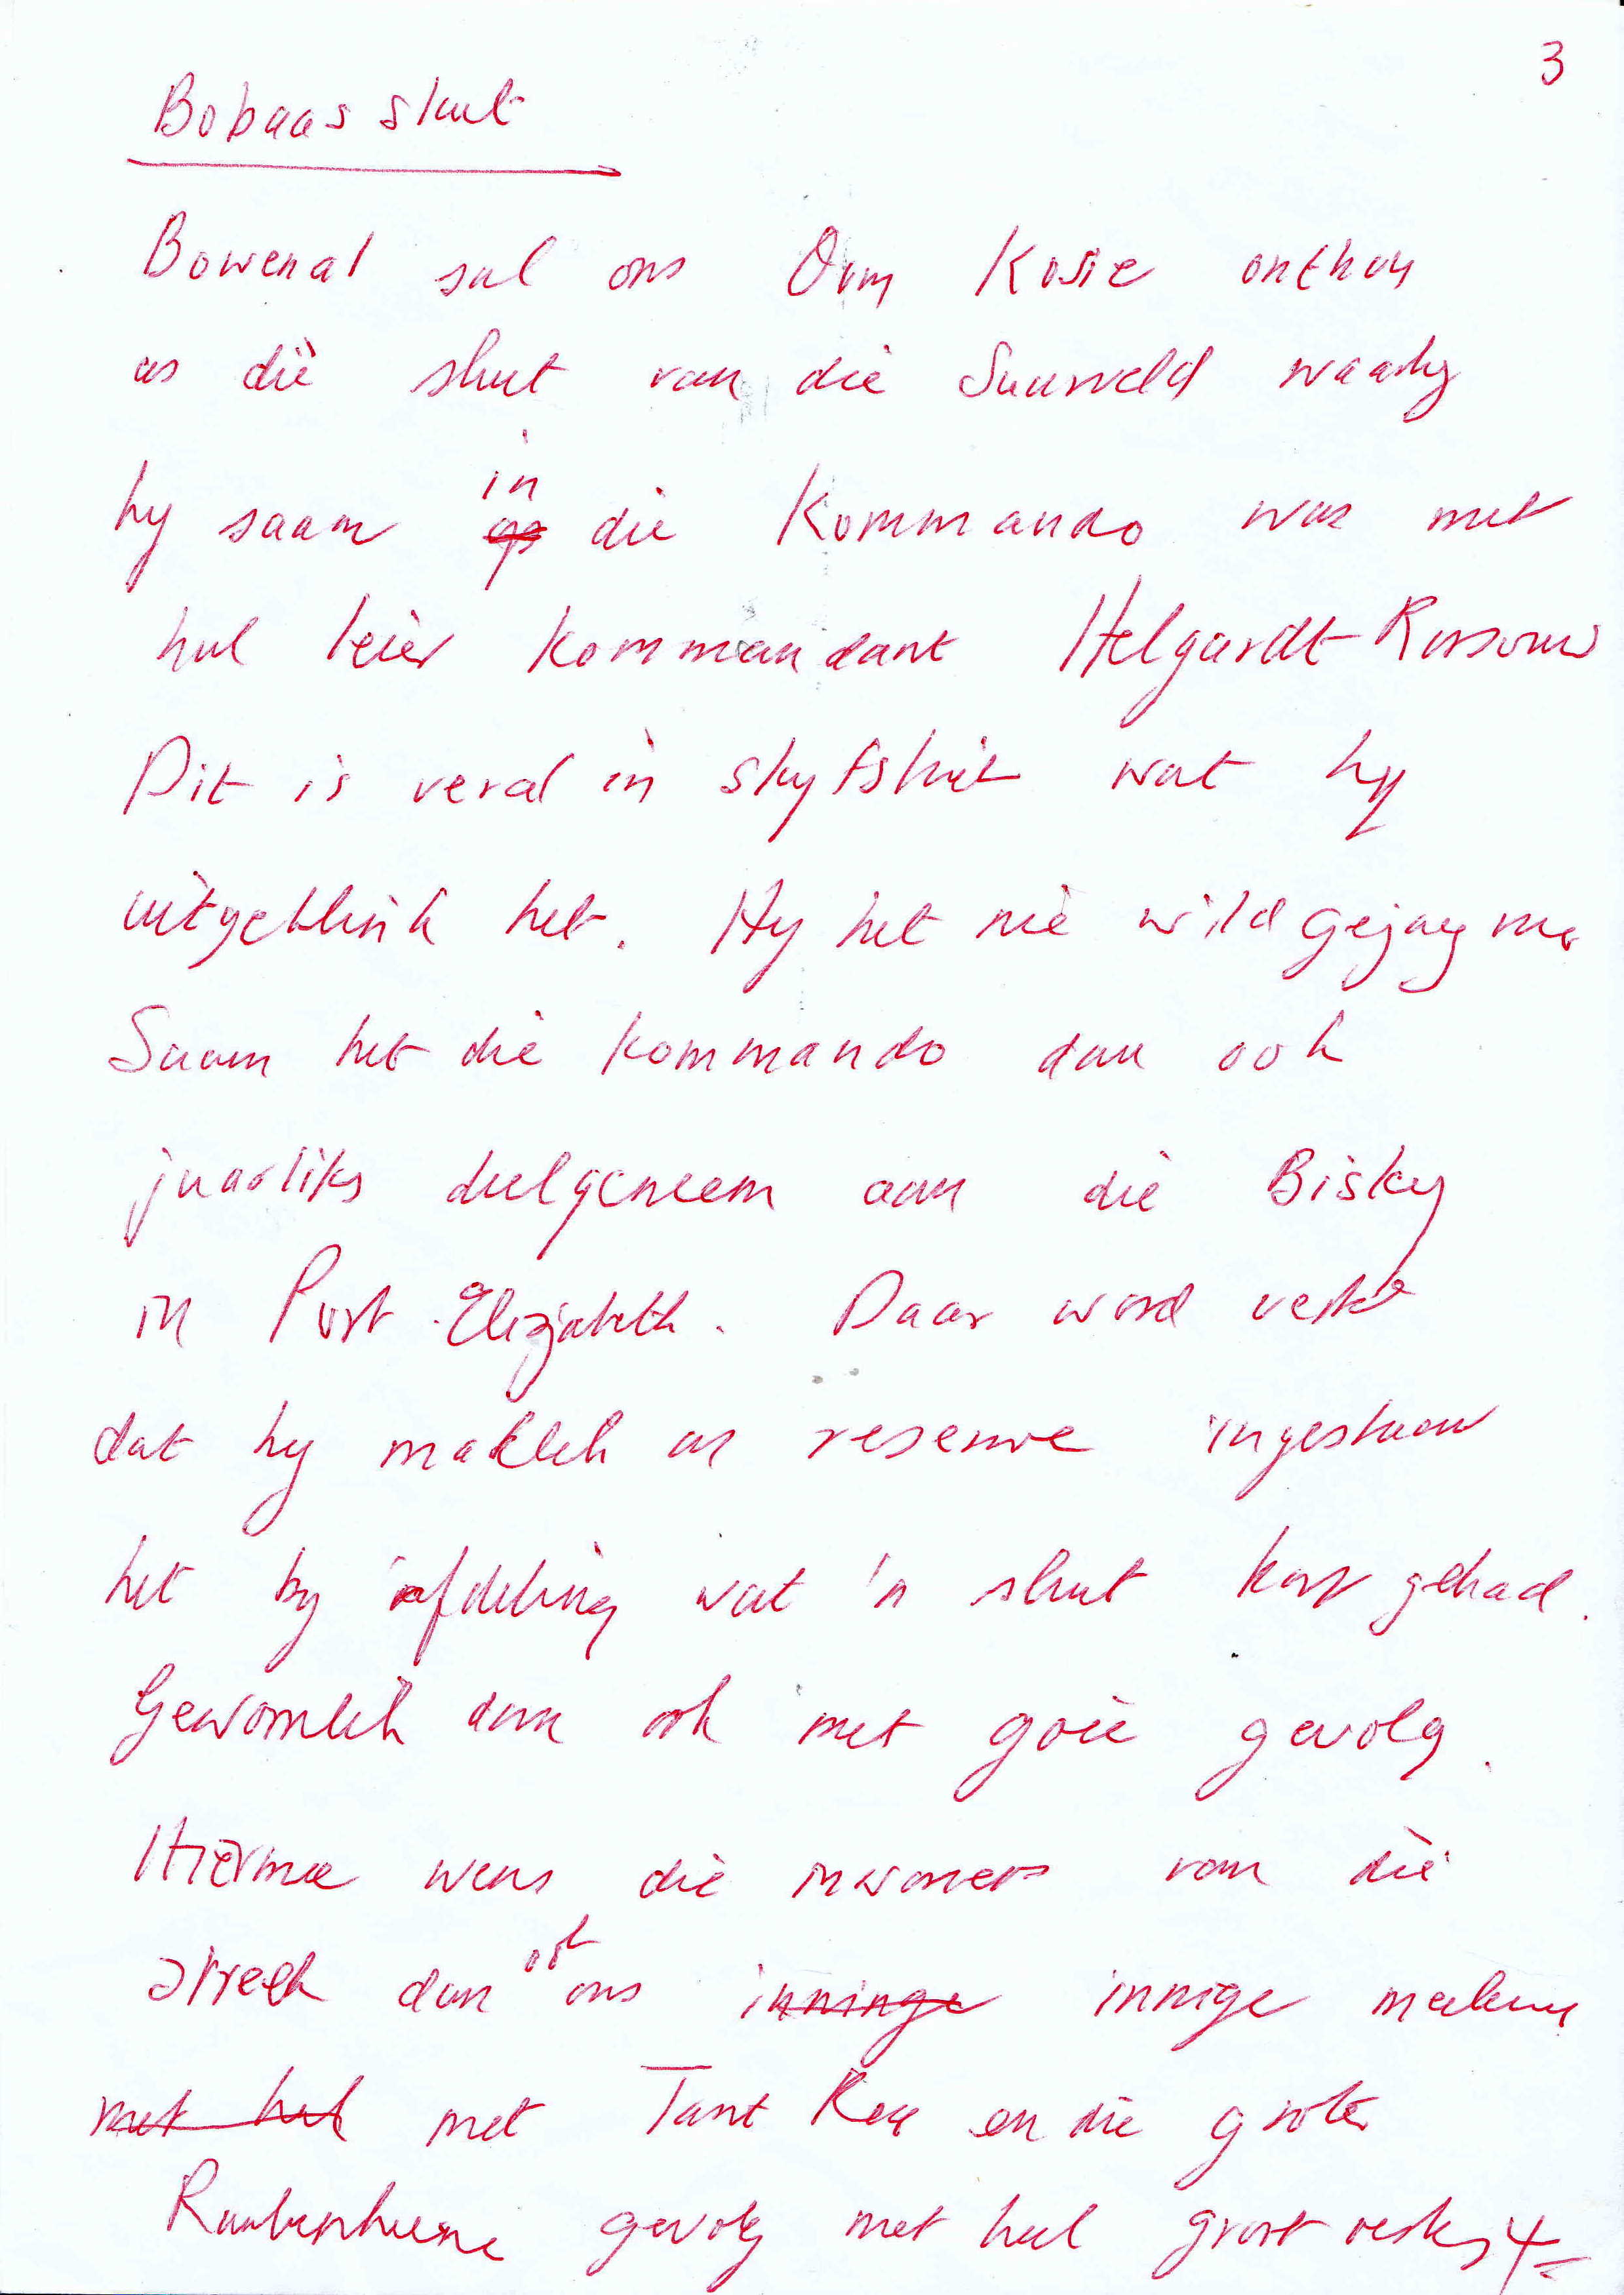 3
Bobaas skut
Bowenal sal ons Oom Kosie onthou
as die skut van die Suurveld waarby
hy saam in die Kommando was met
hul leier Kommandant Helgardt Rossouw
Dit is veral in skyfskiet wat hy
uitgeblink het. Hy het nie wild gejag nie
Saam het die kommando dan ook
jaarliks deelgeneem aan die Bisley
in Port Elizabeth. Daar word vertel
dat hy maklik as reserwe ingestaan
het by afdeling wat 'n skut kort gehad.
Gewoonlik dan ook met goeie gevolg.
Hiermee wens die inwoners van die
streek dan ook ons inninge innige meelewing
met hul met Tant Rea en die groter
Raubenheime gevolg met hul groot verlies 4